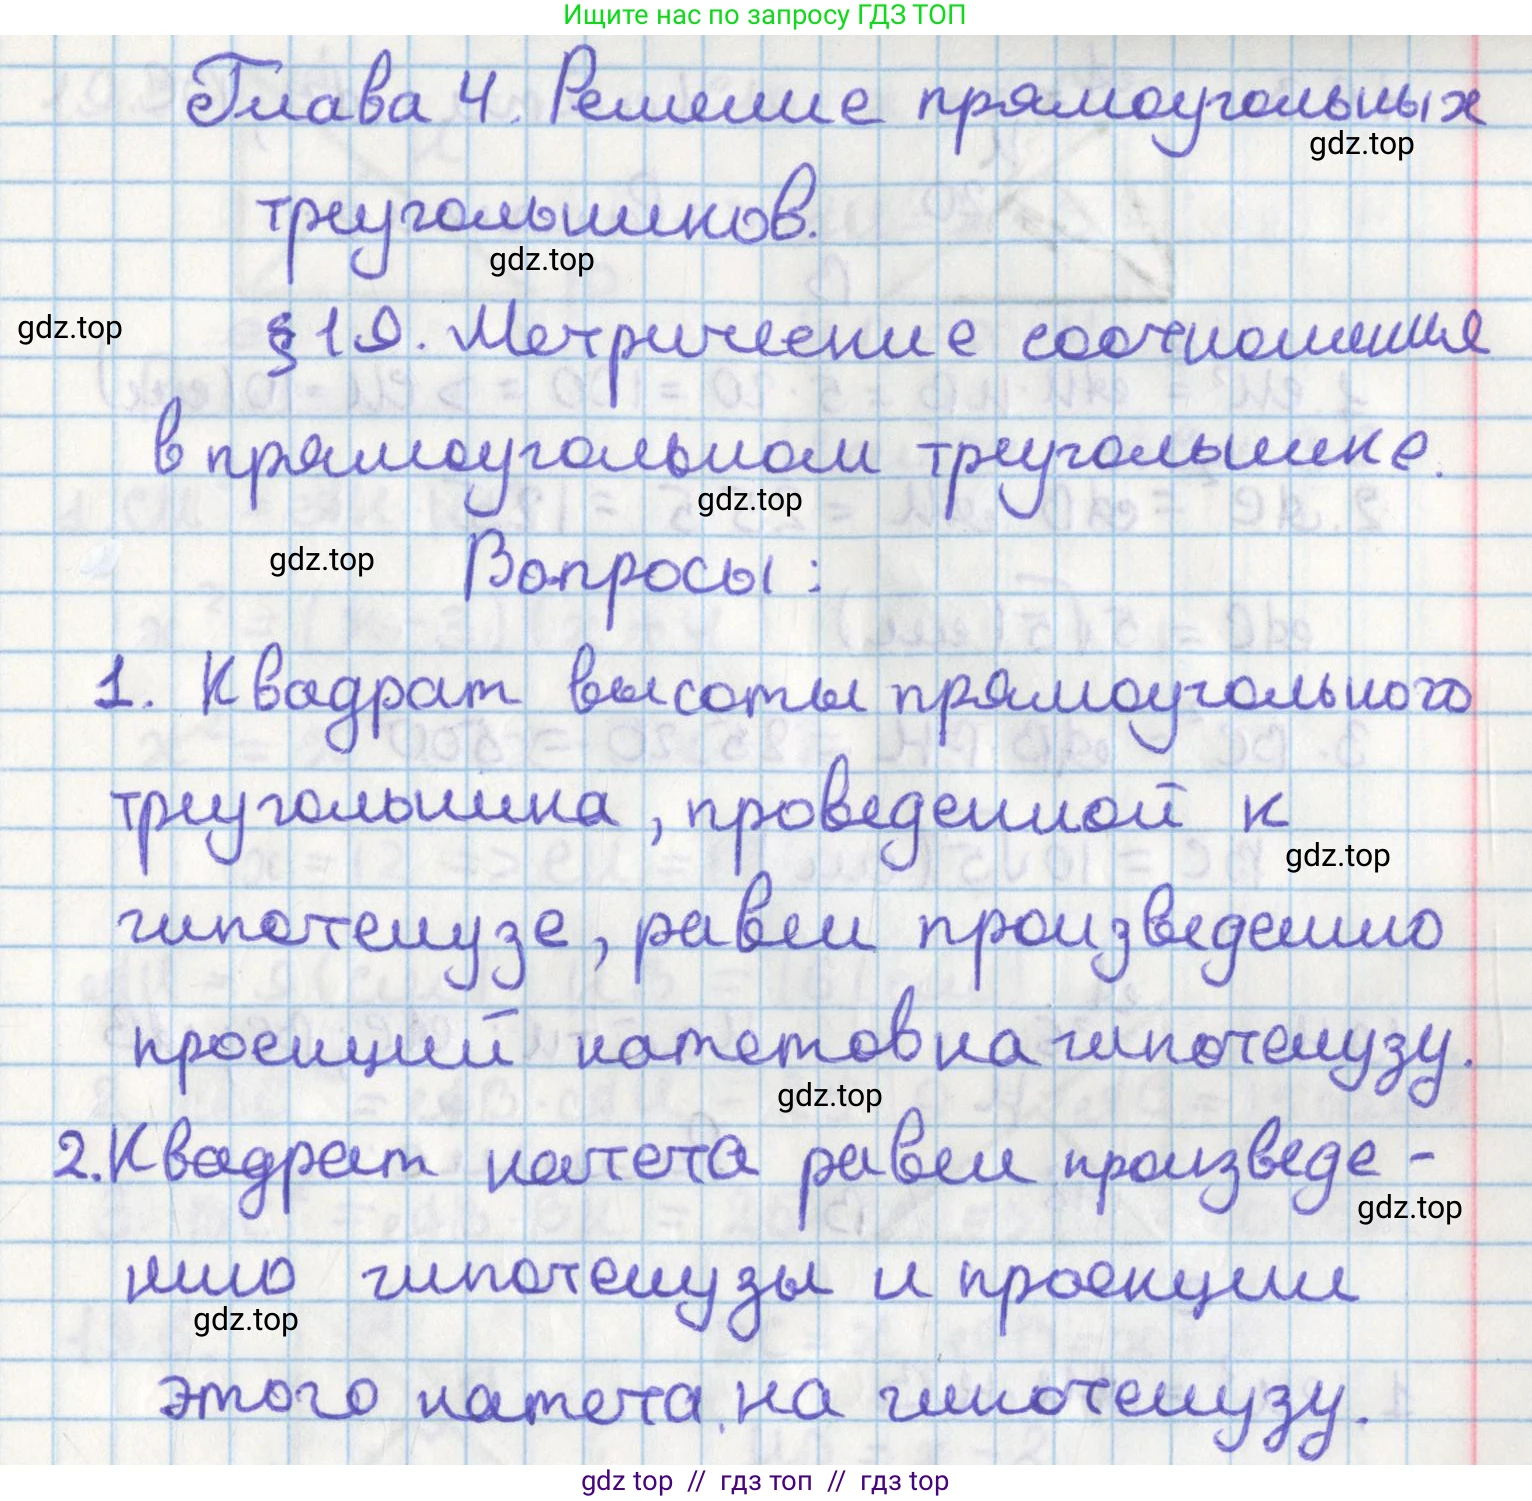 Ищите нас по запросу ГДЗ ТОП
Глава 4. Решение прямоугольных
gdz.top
треугольников.
gdz.top
gdz.top
§ 19. Метрические соотношения
в прямоугольном треугольнике.
gdz.top
gdz.top
Вопросы:
1. Квадрат высоты прямоугольного
треугольника, проведенной к
gdz.top
гипотенузе, равен произведению
проекций катетов на гипотенузу.
gdz.top
2. Квадрат катета равен произведе-
gdz.top
нию гипотенузы и проекции
gdz.top
этого катета на гипотенузу.
gdz top // гдз топ // гдз top